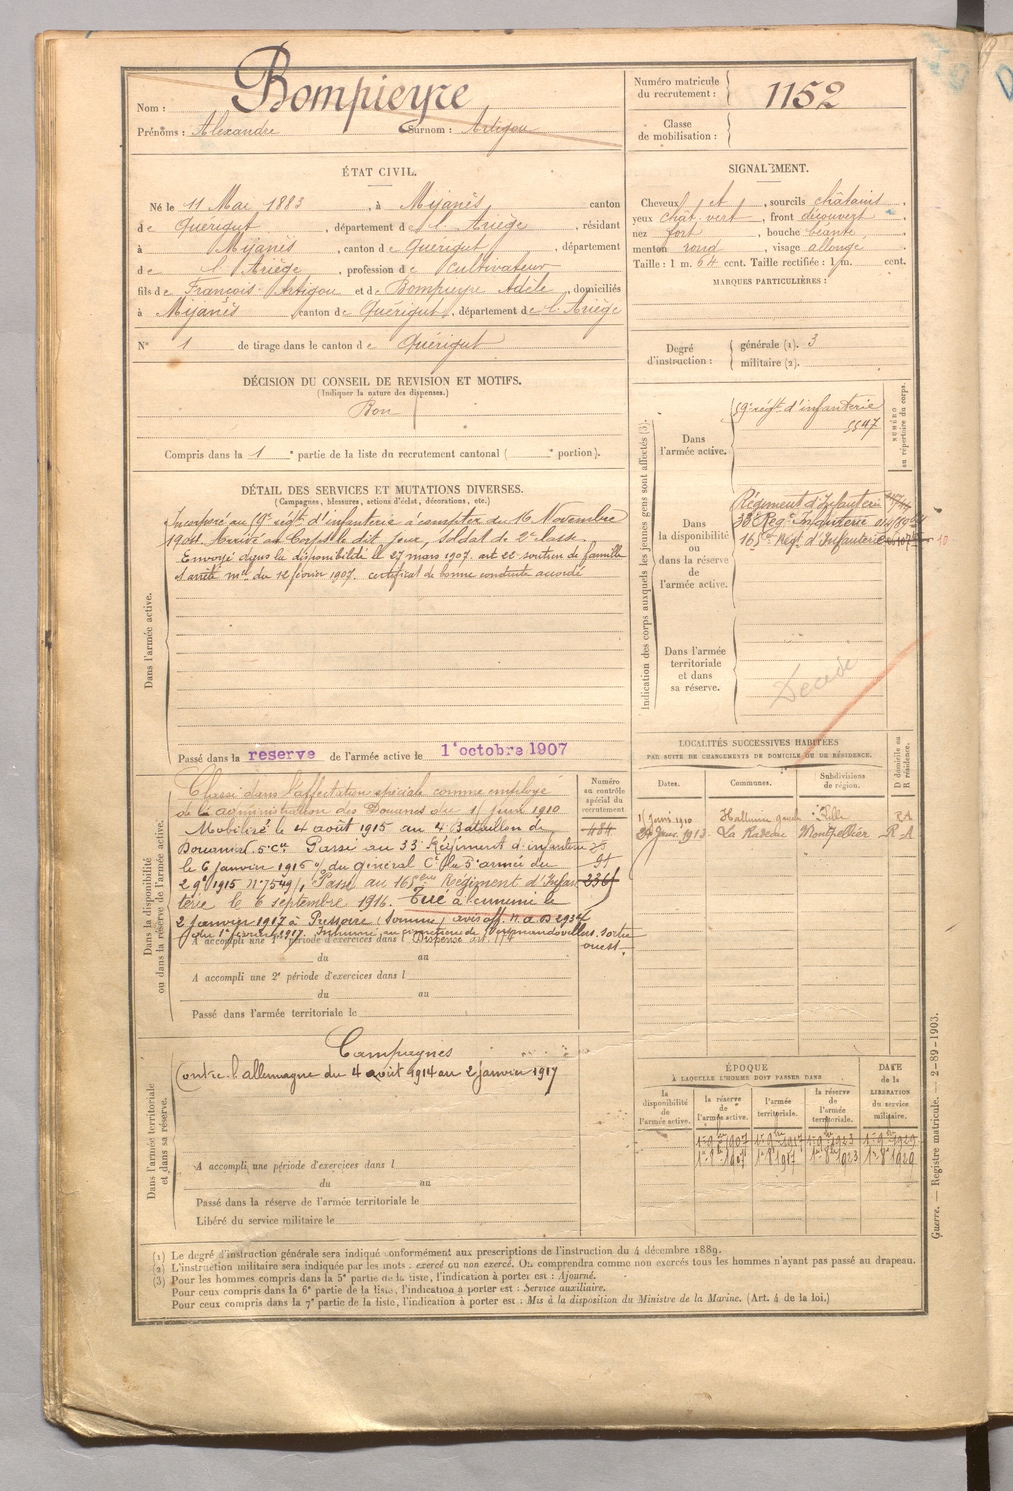 Nom : Bompieyre
Prénoms : Alexandre Surnom : Artigou
Numéro matricule du recrutement : 1152
Classe de mobilisation :
ÉTAT CIVIL.
Né le 11 Mai 1883, à Mijanès canton
de Quérigut, département de l'Ariège, résidant
à Mijanès, canton de Quérigut, département
de l'Ariège, profession de cultivateur
fils de François Artigou et de Bompieyre Adèle, domiciliés
à Mijanès canton de Quérigut, département de l'Ariège
N° 1 de tirage dans le canton de Quérigut
SIGNALEMENT.
Cheveux et, sourcils châtains,
yeux chat. vert, front découvert,
nez fort, bouche béante,
menton rond, visage allongé
Taille : 1 m. 64 cent. Taille rectifiée : 1 m. cent.
MARQUES PARTICULIÈRES :
Degré d'instruction : générale (1). 3
militaire (2).
DÉCISION DU CONSEIL DE REVISION ET MOTIFS.
(Indiquer la nature des dispenses.)
Bon
Compris dans la 1e partie de la liste du recrutement cantonal ( e portion).
DÉTAIL DES SERVICES ET MUTATIONS DIVERSES.
(Campagnes, blessures, actions d'éclat, décorations, etc.)
Dans l'armée active.
Incorporé au 59e régt d'infanterie à compter du 16 Novembre
1904. Arrivé au Corps le dit jour, soldat de 2e classe.
Envoyé dans la disponibilité le 27 mars 1907. art 22 soutien de famille
et arrêté mel du 12 février 1907. certificat de bonne conduite accordé
Passé dans la reserve de l'armée active le 1e octobre 1907
Indication des corps auxquels les jeunes gens sont affectés (3).
NUMÉRO au répertoire du corps.
Dans l'armée active.
59e régt d'infanterie
5547
Dans la disponibilité ou dans la réserve de l'armée active.
Régiment d'Infanterie
33e Reg. Infanterie
165e Régt d'Infanterie
Dans l'armée territoriale et dans sa réserve.
Décédé
LOCALITÉS SUCCESSIVES HABITÉES
PAR SUITE DE CHANGEMENTS DE DOMICILE OU DE RÉSIDENCE.
Dates. Communes. Subdivisions de région. D domicile ou R résidence.
1 Juin 1910 Lille RA
1913 La Montpellier R A
Dans la disponibilité ou dans la réserve de l'armée active.
Numéro au contrôle spécial du recrutement
484
95
2365
Classé dans l'affectation spéciale comme employé
de l'administration des Douanes du 1 Juin 1910
Mobilisé le 4 août 1915 au 4 Bataillon de
Douanes 5e Cie Passé au 33e Régiment d'infanterie
le 6 janvier 1916 du général Ct la 5e armée du
29 1915 n° 7549/1 Passé au 165ème Régiment d'Infan
terie le 6 septembre 1916. Tué à l'ennemi le
2 janvier 1917 à Pressoire (Somme) avis off. n. a D 2934
du 1er février 1917. Inhumé au cimetière de sortie
ouest.
A accompli une 1re période d'exercices dans l Dispensé art.
du au
A accompli une 2e période d'exercices dans l
du au
Passé dans l'armée territoriale le
Dans l'armée territoriale et dans sa réserve.
Campagnes
Contre l'allemagne du 4 août 1914 au 2 janvier 1917
A accompli une période d'exercices dans l
du au
Passé dans la réserve de l'armée territoriale le
Libéré du service militaire le
ÉPOQUE
À LAQUELLE L'HOMME DOIT PASSER DANS
la disponibilité de l'armée active. la réserve de l'armée active. l'armée territoriale. la réserve de l'armée territoriale. DATE de la LIBÉRATION du service militaire.
1907 1917 1923 1929
1907 1917 1923 1929
Guerre. — Registre matricule. — 2-89-1903.
(1) Le degré d'instruction générale sera indiqué conformément aux prescriptions de l'instruction du 4 décembre 1889.
(2) L'instruction militaire sera indiquée par les mots : exercé ou non exercé. On comprendra comme non exercés tous les hommes n'ayant pas passé au drapeau.
(3) Pour les hommes compris dans la 5e partie de la liste, l'indication à porter est : Ajourné.
Pour ceux compris dans la 6e partie de la liste, l'indication à porter est : Service auxiliaire.
Pour ceux compris dans la 7e partie de la liste, l'indication à porter est : Mis à la disposition du Ministre de la Marine. (Art. 4 de la loi.)